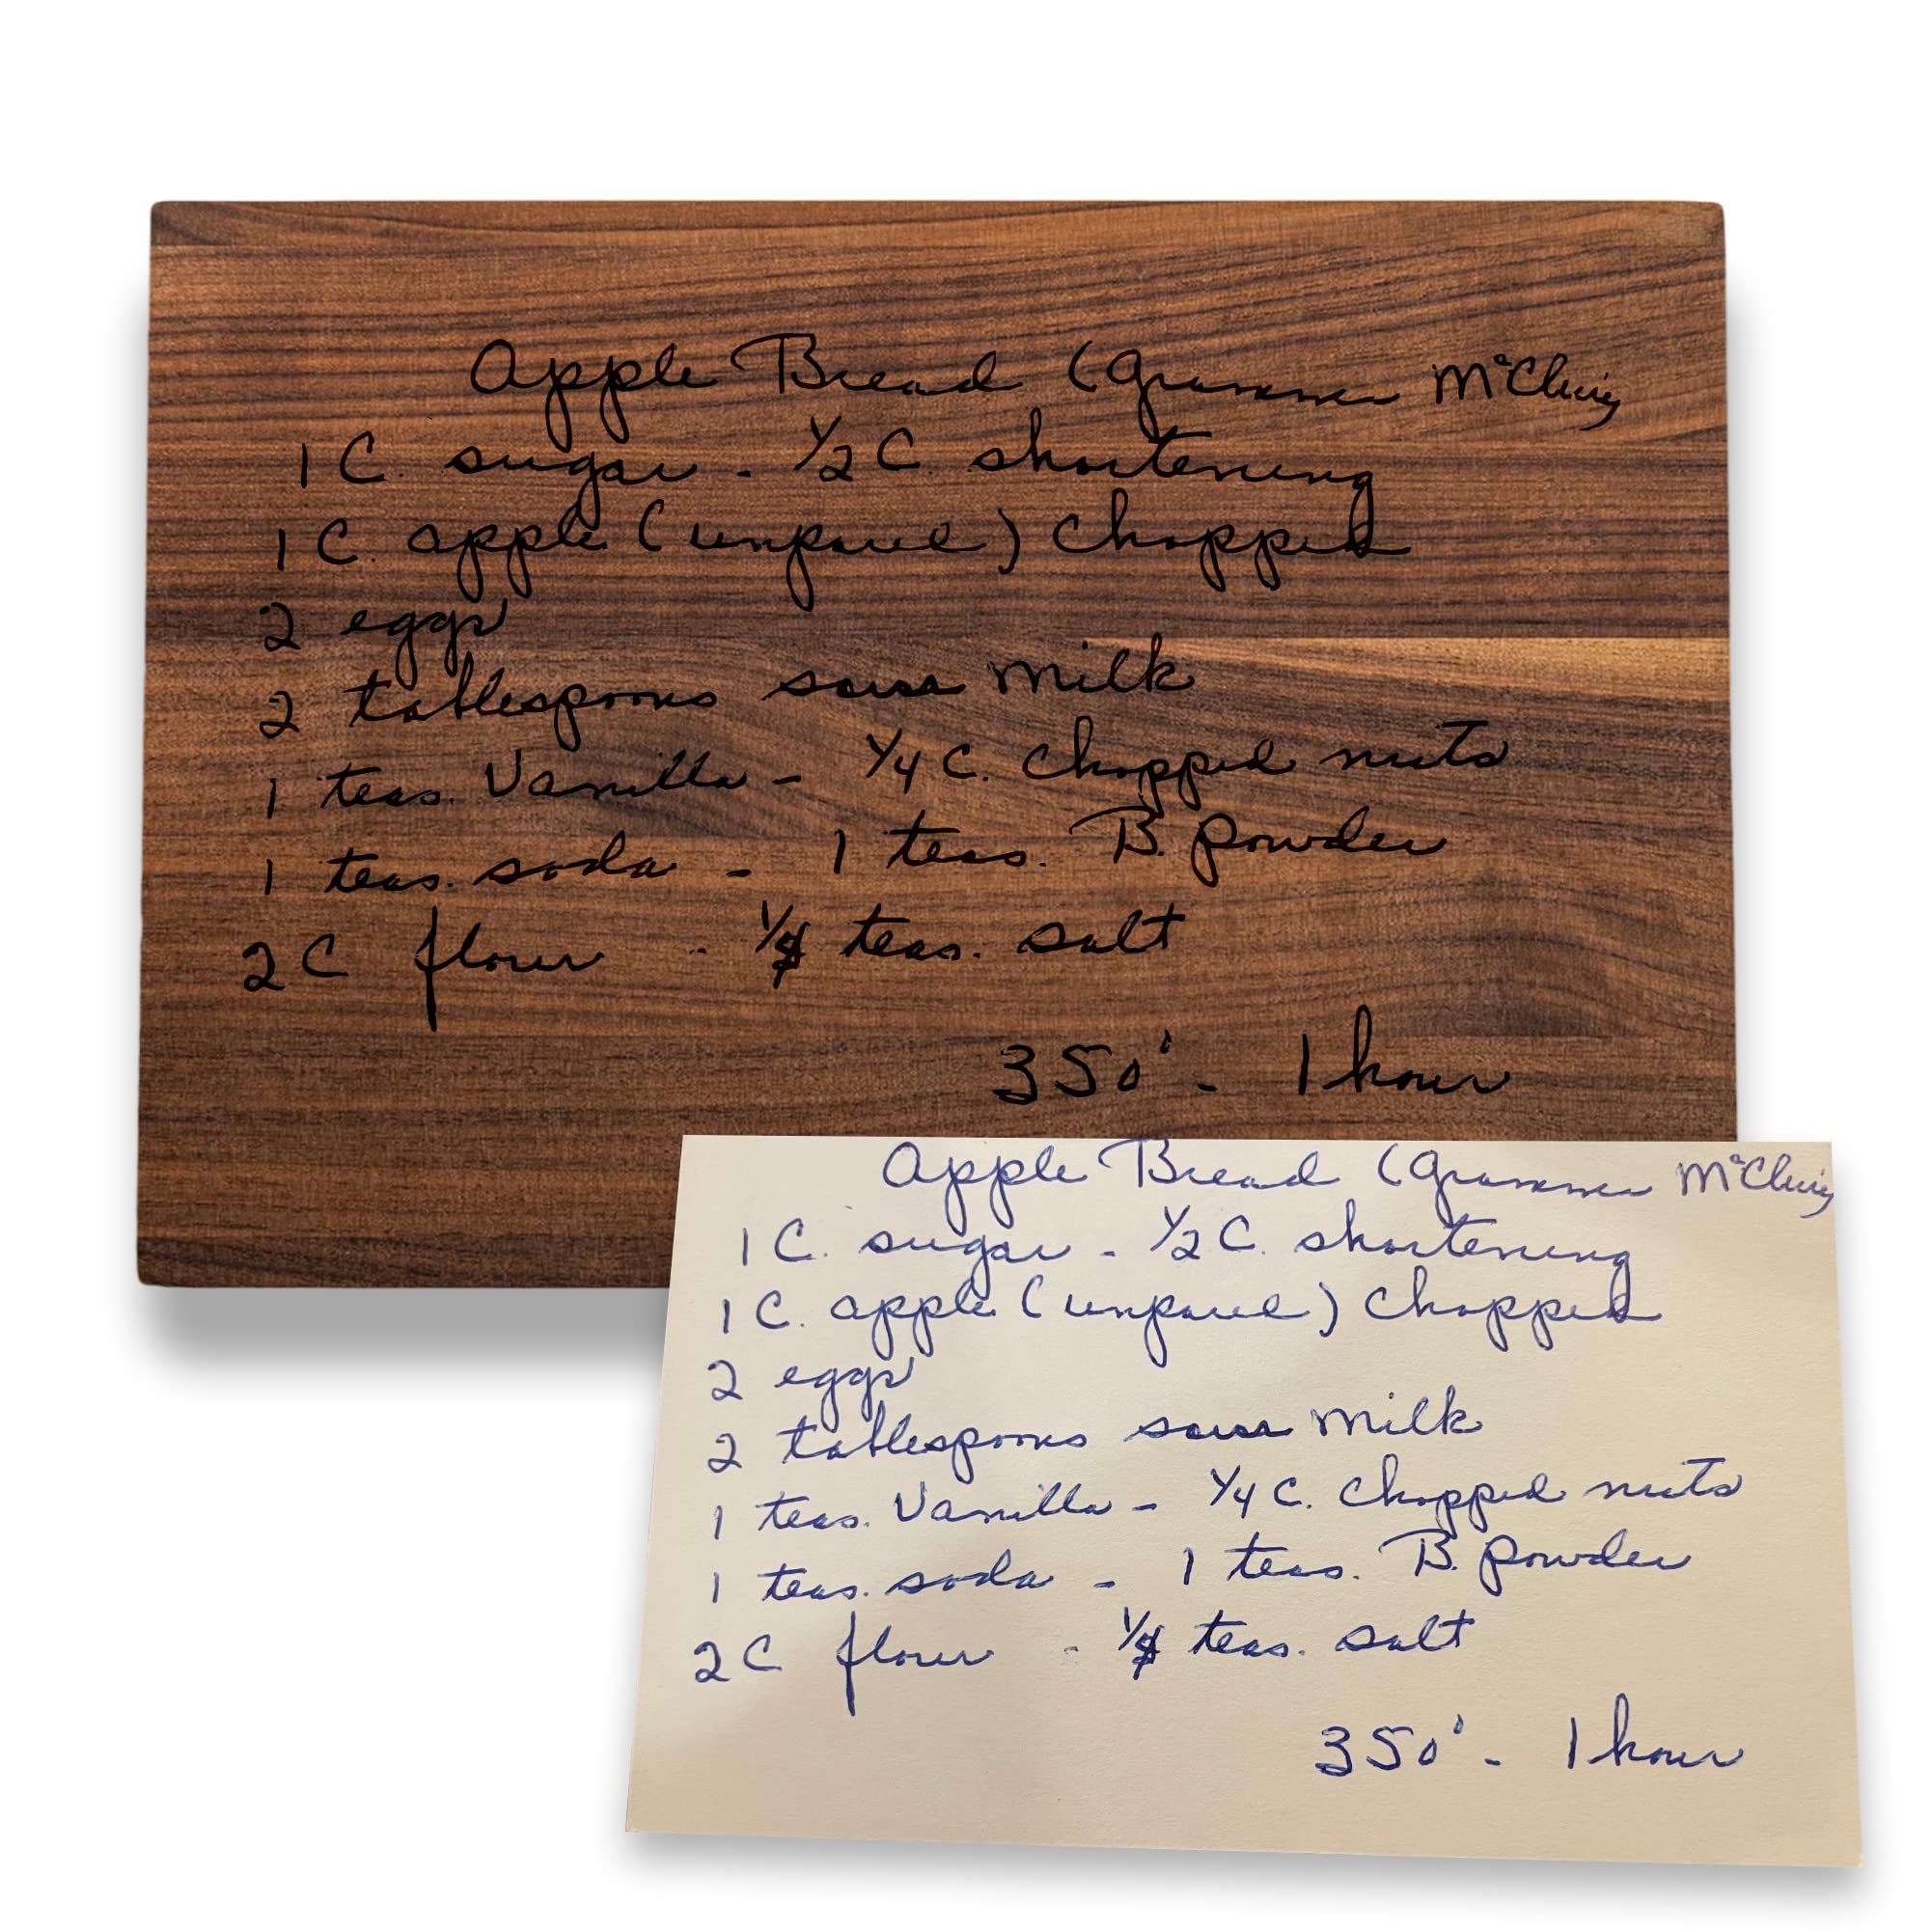 Apple Bread (Gramma
1 C. sugar - 1/2 C. shortening
1 C. apple (unpared) chopped
2 eggs
2 tablespoons sour milk
1 teas. Vanilla - 1/4 C. chopped nuts
1 teas. soda - 1 teas. B. powder
2 C flour - teas. salt
350° - 1 hour
Apple Bread (Gramma
1 C. sugar - 1/2 C. shortening
1 C. apple (unpared) chopped
2 eggs
2 tablespoons sour milk
1 teas. Vanilla - 1/4 C. chopped nuts
1 teas. soda - 1 teas. B. powder
2 C flour - teas. salt
350° - 1 hour